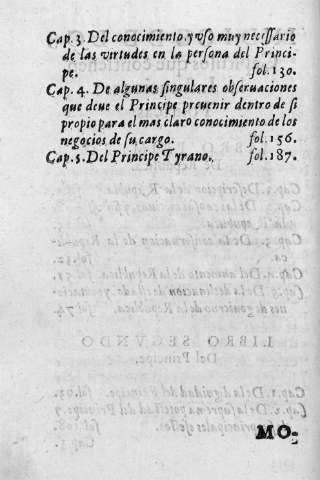 Cap. 3. Del conocimiento, y vso muy necessario
de las virtudes en la persona del Princi-
pe. fol. 130.
Cap. 4. De algunas singulares obseruaciones
que deue el Principe preuenir dentro de si
propio para el mas claro conocimiento de los
negocios de su cargo. fol. 156.
Cap. 5. Del Principe Tyrano. fol. 187.
MO-